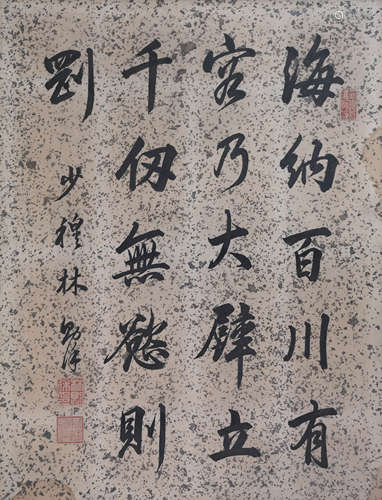 海納百川有
容乃大壁立
千仭無慾則
剛
少穆林則徐